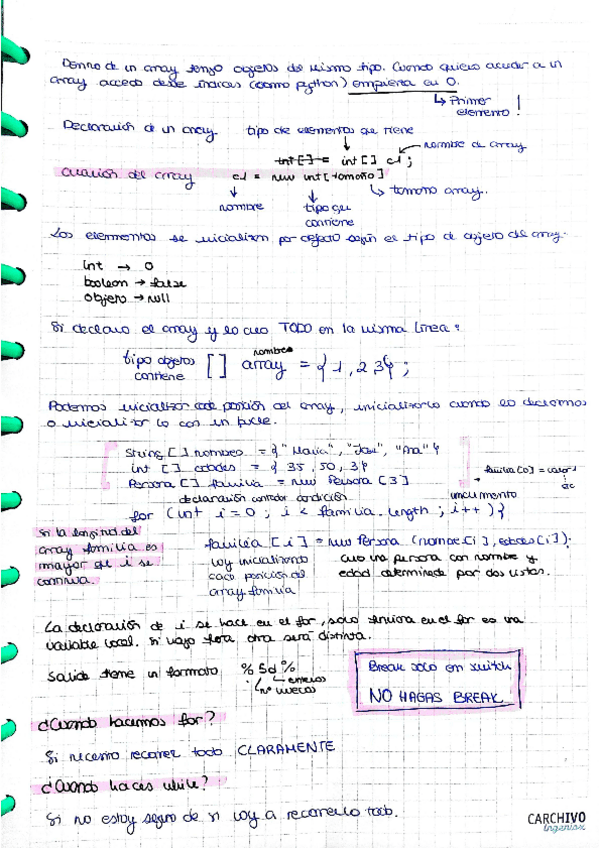 Dentro de un array tengo objetos del mismo tipo. Cuando quiero acceder a un
array accedo desde índices (como python) empieza en 0.
↳ Primer
elemento!
Declaración de un array. tipo de elementos que tiene
int[] = int [] a ; nombre de array
creación del array a = new int [tamaño]
nombre tipo que ↳ tamaño array.
contiene
Los elementos se inicializan por defecto según el tipo de objeto del array.
int → 0
boolean → false
objeto → null
Si declaro el array y lo creo TODO en la misma línea:
tipo objetos [] nombre array = {1,2,3};
contiene
Podemos inicializar cada posición del array, inicializarlo cuando lo declaramos
o inicializarlo con un bucle.
String [] nombres = {"Maria", "Jose", "Ana"}
int [] edades = {35, 50, 3}
Persona [] familia = new Persona [3]
→ familia[0] = valor
declaración contador condición incremento
for (int i = 0 ; i < familia.length ; i++) {
Si la longitud del
array familia es
mayor que i se
continua.
familia [i] = new Persona (nombre[i], edades[i]);
voy inicializando
cada posición del
array familia
creo una persona con nombre y
edad determinada por dos listas.
La declaración de i se hace en el for, solo funciona en el for es una
variable local. Si vago fuera otra será distinta.
Salida tiene un formato %5d%
↳ enteros
↳ nº huecos
Break solo en switch
NO HAGAS BREAK
¿Cuando hacemos for?
Si necesito recorrer todo CLARAMENTE
¿Cuando haces while?
Si no estoy seguro de si voy a recorrerlo todo.
CARCHIVO
Ingeniax